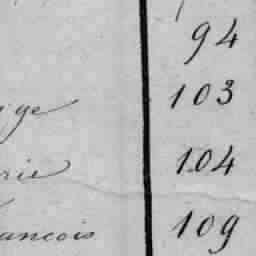 94
ge 103
rie 104
ancois 109